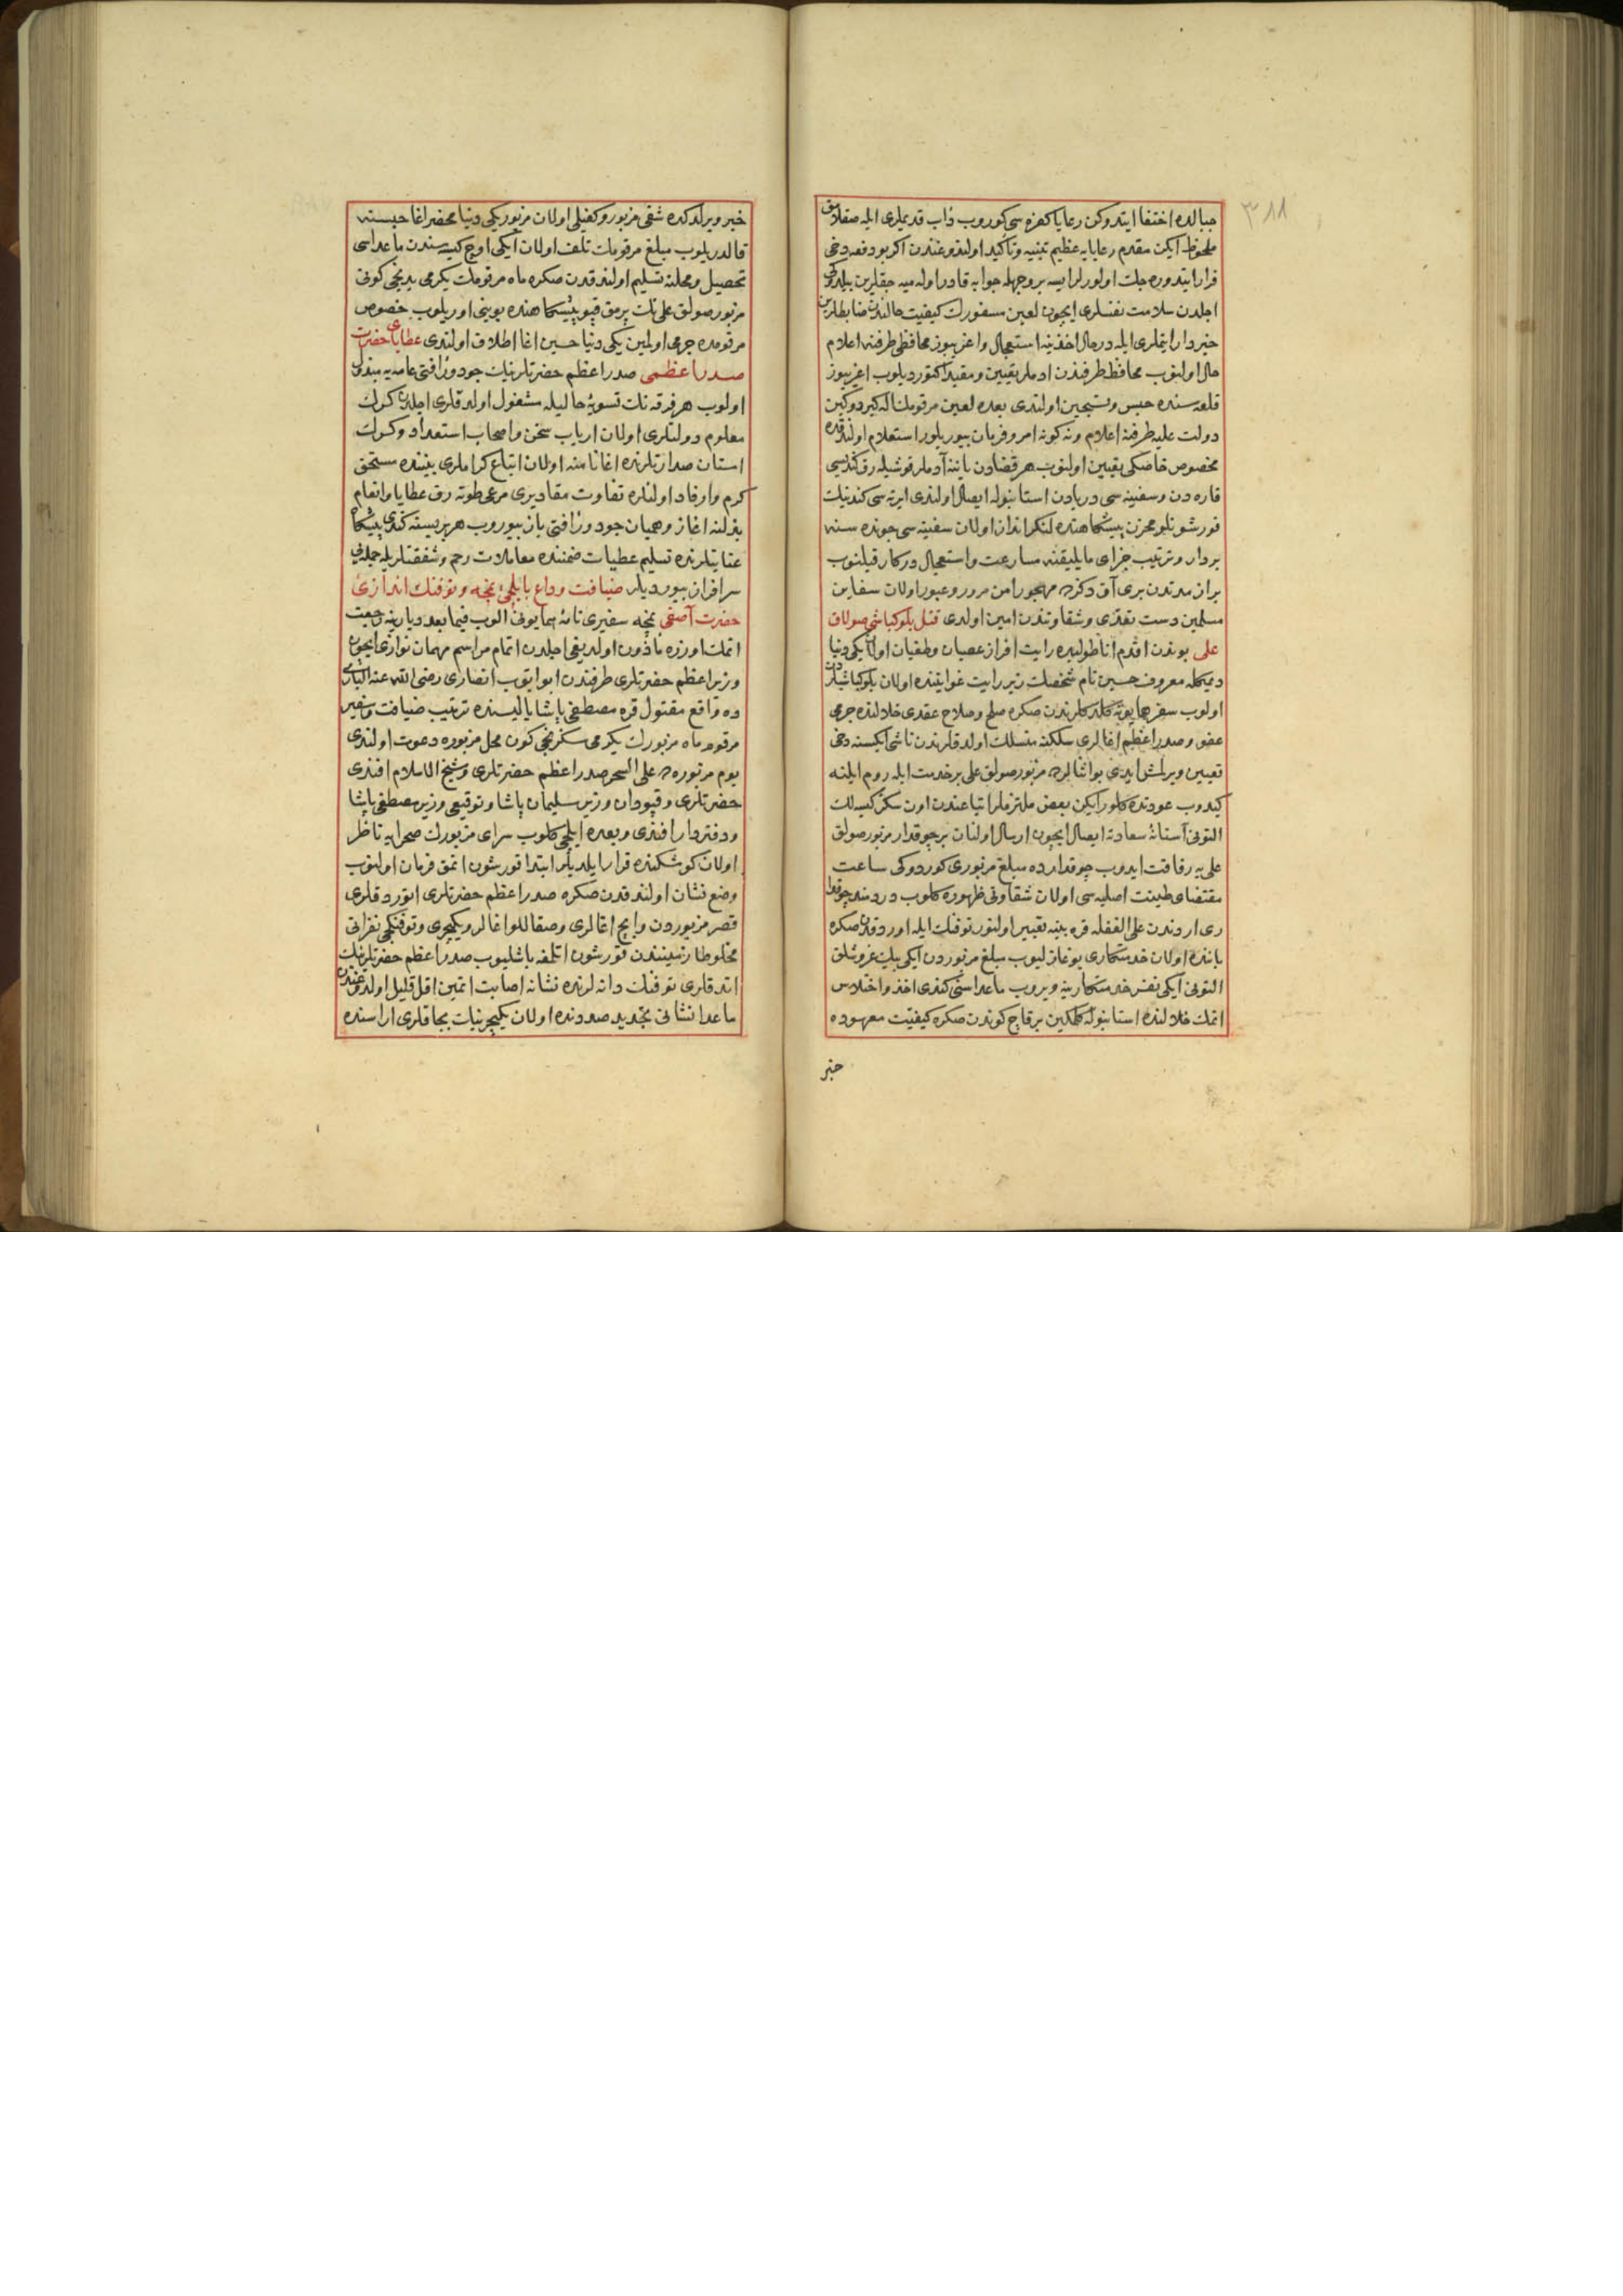 ٣٨٨
جبالده اختفا ایتدوكن رعایا كفره سی كوروب ذاب قدیملری ایله صقلامق
ملحوظ ایكن مقدم رعایایه عظیم تنبیه وتأكید اولندوغندن اكر بو دفعه دخی
فرار ایتدوره جك اولورلر ایسه بر وجهله جوابه قادر اوله میه جقلرین بیلدكلری
اجلدن سلامت نفسلری ایچون لعین مسفورك كیفیت حالندن ضابطلرین
خبردار ایتملری ایله درحال اخذینه استعجال واغریبوز محافظی طرفنه اعلام
حال اولنوب محافظ طرفندن ادملر تعیین ومقیدا كتوردیلوب اغریبوز
قلعه سنده حبس وتسجین اولندی بعده لعین مرقومك اله كیردوكین
دولت علیه طرفنه اعلام ونه كونه امر وفرمان بیوریلور استعلام اولندقده
مخصوص خاصكی تعیین اولنوب هر قضادن یاننه آدملر قوشیله رق كندیسی
قاره دن وسفینه سی دریادن استانبوله ایصال اولندی ایرته سی كندینك
قورشونلو مخزن پیشكاهنده لنكر انداز اولان سفینه سی جونده سنه
بردار وترتیب جزای مایلیقنه مسارعت واستعجال دركار قیلنوب
براز مدتدن بری آق دكزده مهجور امن مرور وعبور اولان سفاین
مسلمین دست تعدّی وشقاوتندن امین اولدی قتل بلوكباشی صولاق
علی بوندن اقدم اناطولیده رایت افراز عصیان وطغیان اولان یكی دنیا
دیمكله معروف حسین نام شخصك زیر رایت غوایتنده اولان بلوكباشیلردن
اولوب سفر همایونه كلدكلرندن صكره صلح وصلاح عقدی خلالنده جرمی
عفو وصدر اعظم اغالری سلكنه منسلك اولدقلرندن ناشی ایكیسنه دخی
تعیین ویرلمش ایدی بو اثنالرده مزبور صولاق علی بر خدمت ایله روم ایلنه
كیدوب عودتده كلور ایكن بعض ملتزملر اتباعندن اون سكز كیسه لك
التونی آستانۀ سعادته ایصال ایچون ارسال اولنان بر چوقدار مزبور صولاق
علی یه رفاقت ایدوب چوقدارده مبلغ مزبوری كوردوكی ساعت
مقتضای طینت اصلیه سی اولان شقاوتی ظهوره كلوب دردمند چوقدا
ری اردندن علی الغفله قره بینه تعبیر اولنور توفنك ایله اوردقدن صكره
یاننده اولان خدمتكاری بوغازلیوب مبلغ مزبوردن ایكی بیك غروشلق
التونی ایكی نفر خدمتكارینه ویروب ماعداسنی كندی اخذ واختلاس
اتمك خلالنده استانبوله كلمكین بر قاچ كوندن صكره كیفیت معهوده
خبر
خبر ویرلدكده شقی مزبور وكفیلی اولان مزبور یكی دنیا محضر اغا حبسنه
قالدریلوب مبلغ مرقومك تلف اولان ایكی اوچ كیسه سندن ماعداسی
تحصیل ومحلنه تسلیم اولندقدن صكره ماه مرقومك یكرمی یدنجی كونی
مزبور صولاق علینك پرمق قپو پیشكاهنده بوینی اوریلوب خصوص
مرقومده جرمی اولمین یكی دنیا حسین اغا اطلاق اولندی عطایای حضرت
صدر اعظمی صدر اعظم حضرتلرینك جود ورأفتی عامه یه مبذول
اولوب هر فرقه نك تسویۀ حالیله مشغول اولدقلری اجلدن كرك
معلوم دولتلری اولان ارباب سخن واصحاب استعداد وكرك
استان صدارتلرنده اغانامنه اولان اتباع كراملری بیننده مستحق
كرم وارفاد اولنلره تفاوت مقادیری مرعی طوته رق عطایا وانعام
بذلنه اغاز وهمیان جود ورأفتی باز بیوروب هر بریسنه كندی پیشكاه
عنایتلرنده تسلیم عطیات ضمننده معاملات رحم وشفقتلریله جمله سنی
سرافراز بیوردیلر ضیافت وداع بایلچیء نمچه وتوفنك اندازیء
حضرت آصفی نمچه سفیری نامۀ همایونی الوب فیما بعد دیارینه رجعت
اتمك اوزره مأذون اولدیغی اجلدن اتمام مراسم مهمان نوازی ایچون
وزیر اعظم حضرتلری طرفندن ابو ایوب انصاری رضی الله عنه الباری
ده واقع مقتول قره مصطفی پاشا یالیسنده ترتیب ضیافت وسفیر
مرقوم ماه مزبورك یكرمی سكزنجی كون محل مزبوره دعوت اولندی
یوم مزبورده علی السحر صدر اعظم حضرتلری وشیخ الاسلام افندی
حضرتلری وقپودان وزیر سلیمان پاشا وتوقیعی وزیر مصطفی پاشا
ودفتردار افندی وبعده ایلچی كلوب سرای مزبورك صحرایه ناظر
اولان كوشكنده قرار ایلدیلر ابتدا قورشون اتمق فرمان اولنوب
وضع نشان اولندقدن صكره صدر اعظم حضرتلری اتوردقلری
قصر مزبوردن وایچ اغالری وصقاللو اغالر ویكیچری وتوفنكجی نفراتی
مخلوطا زمیندن قورشون اتلمغه باشلیوب صدر اعظم حضرتلرینك
اتدقلری توفنك دانه لرنده نشانه اصابت اتمین اقل قلیل اولدوغندن
ماعدا نشانی تجدید صددنده اولان یكیچرینك بجاقلری اراسنده